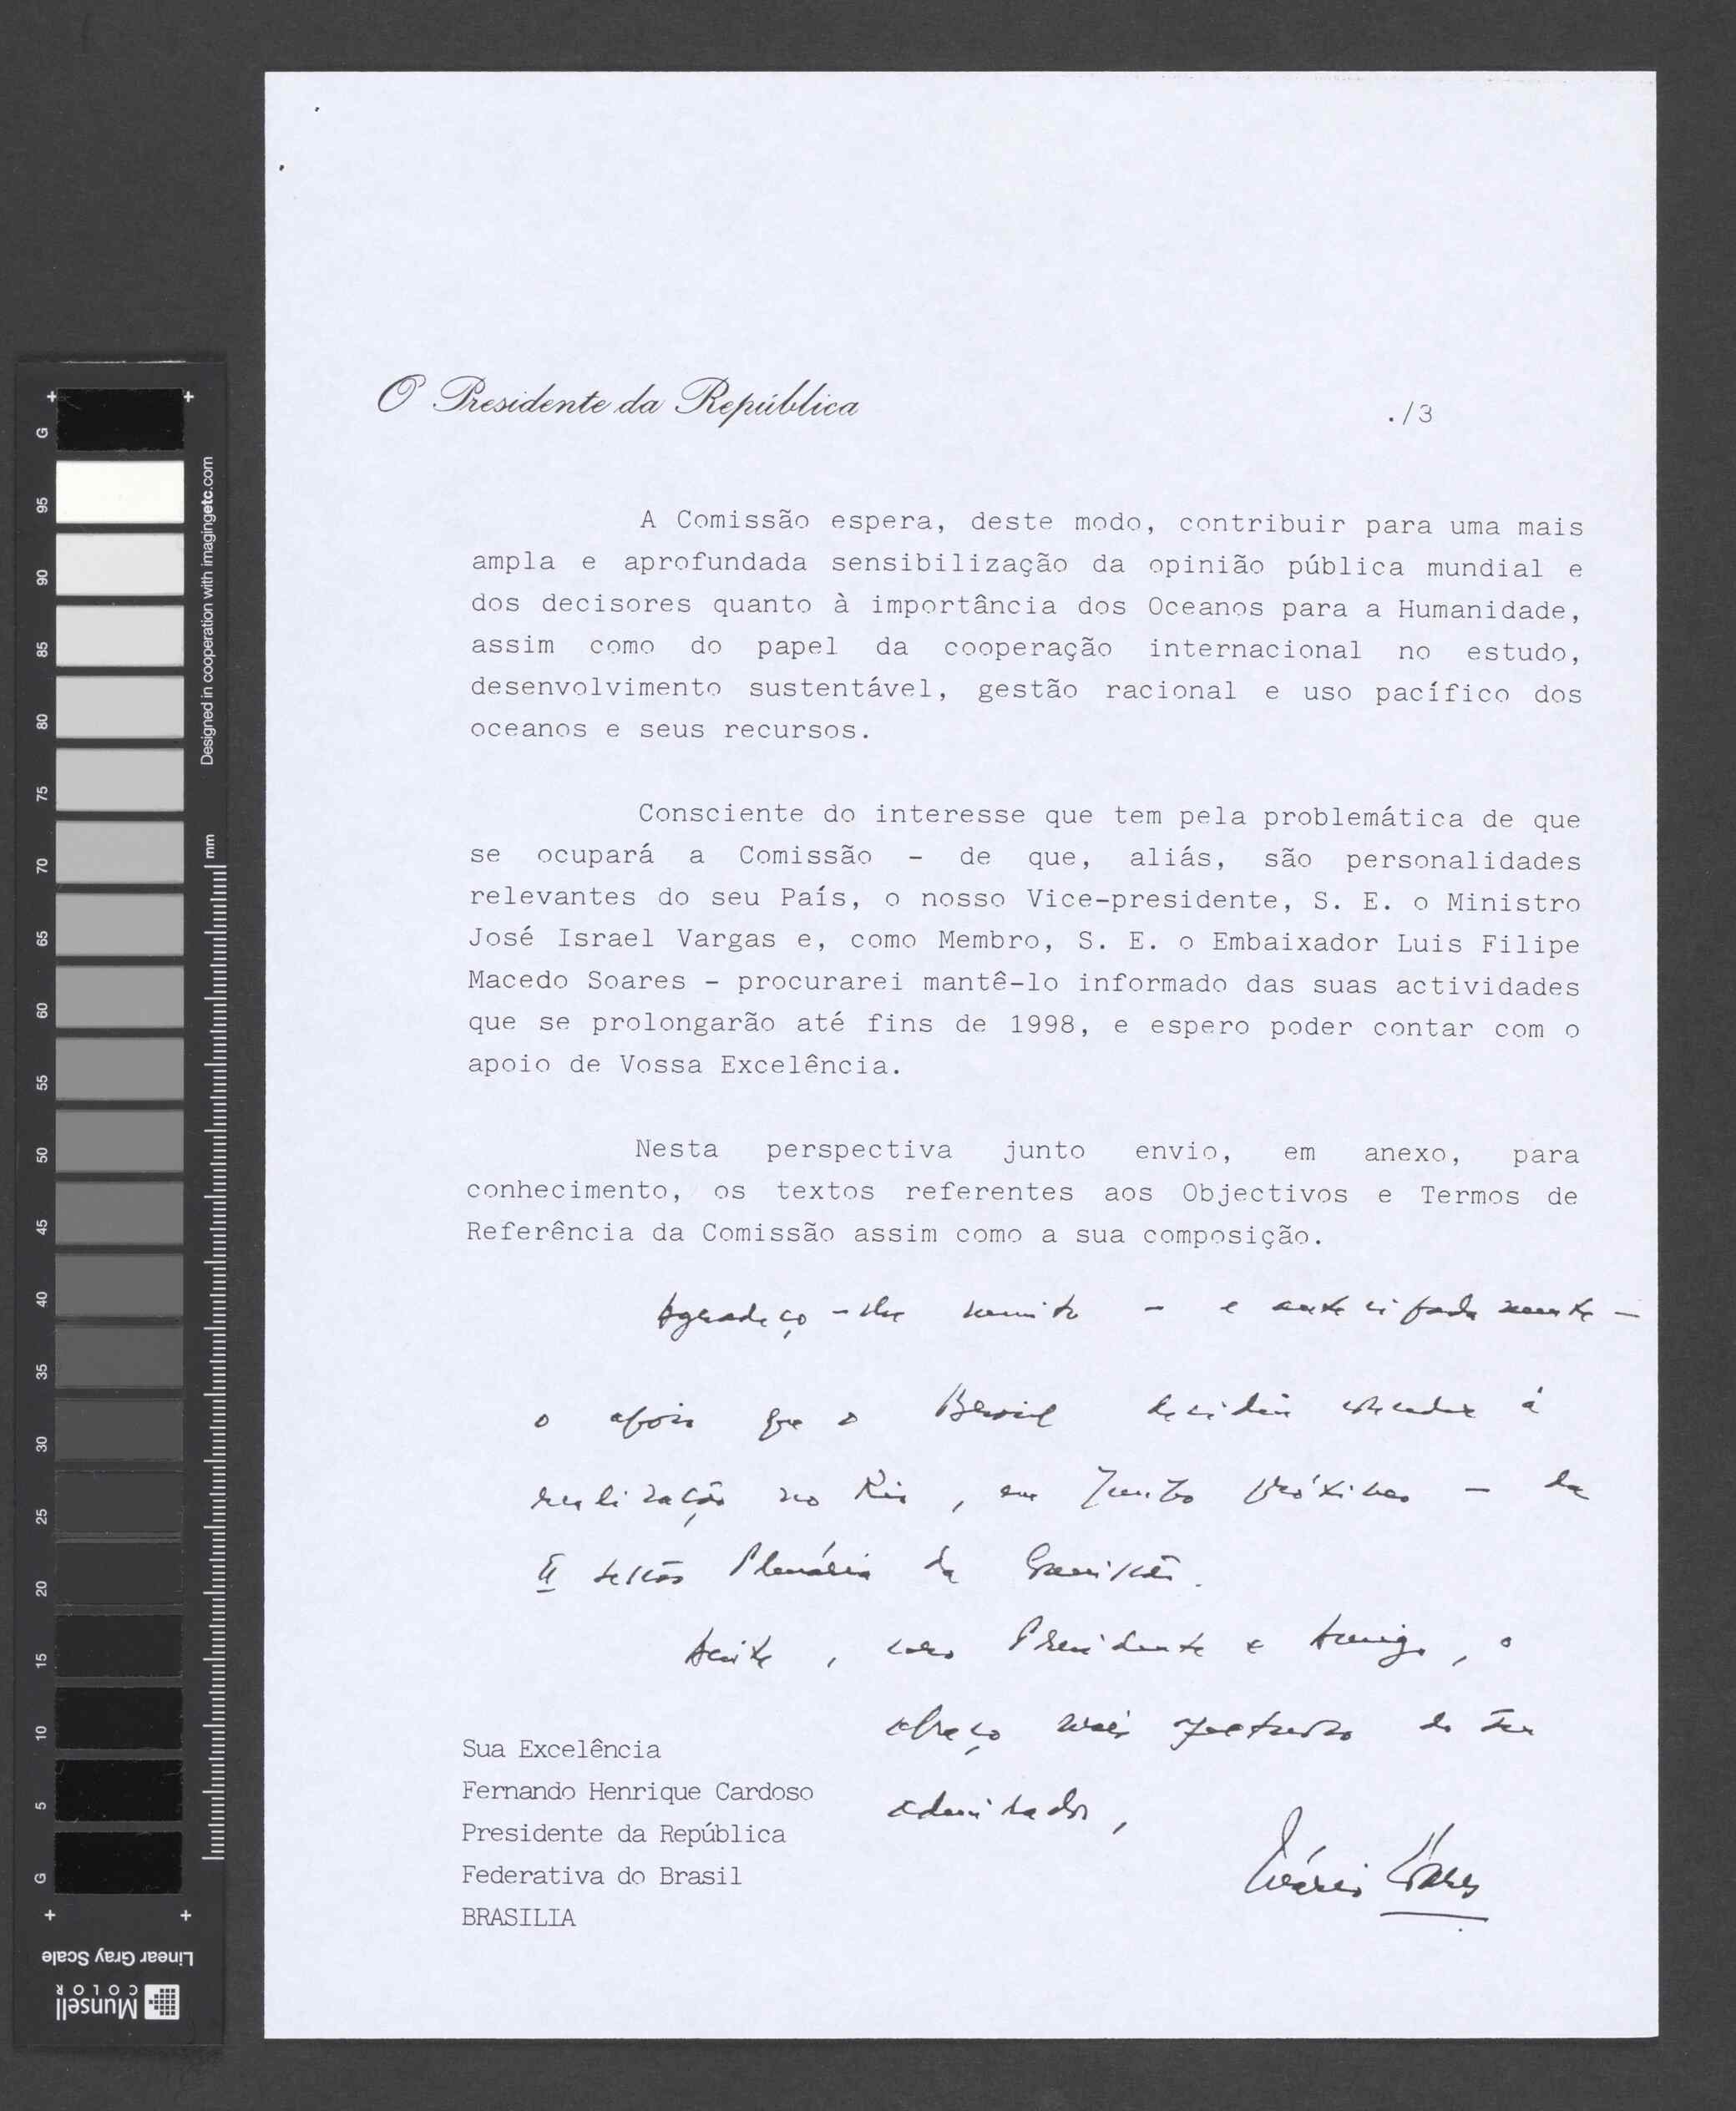 O Presidente da República
./3
A Comissão espera, deste modo, contribuir para uma mais
ampla e aprofundada sensibilização da opinião pública mundial e
dos decisores quanto à importância dos Oceanos para a Humanidade,
assim como do papel da cooperação internacional no estudo,
desenvolvimento sustentável, gestão racional e uso pacífico dos
oceanos e seus recursos.
Consciente do interesse que tem pela problemática de que
se ocupará a Comissão - de que, aliás, são personalidades
relevantes do seu País, o nosso Vice-presidente, S. E. o Ministro
José Israel Vargas e, como Membro, S. E. o Embaixador Luis Filipe
Macedo Soares - procurarei mantê-lo informado das suas actividades
que se prolongarão até fins de 1998, e espero poder contar com o
apoio de Vossa Excelência.
Nesta perspectiva junto envio, em anexo, para
conhecimento, os textos referentes aos Objectivos e Termos de
Referência da Comissão assim como a sua composição.
Agradeço-lhe muito - e antecipadamente -
o apoio que o Brasil decidiu conceder à
realização no Rio, em Junho próximo - da
II sessão Plenária da Comissão.
Aceite, caro Presidente e Amigo, o
abraço mais afectuoso do seu
admirador,
Mário Soares
Sua Excelência
Fernando Henrique Cardoso
Presidente da República
Federativa do Brasil
BRASILIA
G 95 90 85 80 75 70 65 60 55 50 45 40 35 30 25 20 15 10 5 G
Designed in cooperation with imagingetc.com
mm
Linear Gray Scale
Munsell
COLOR